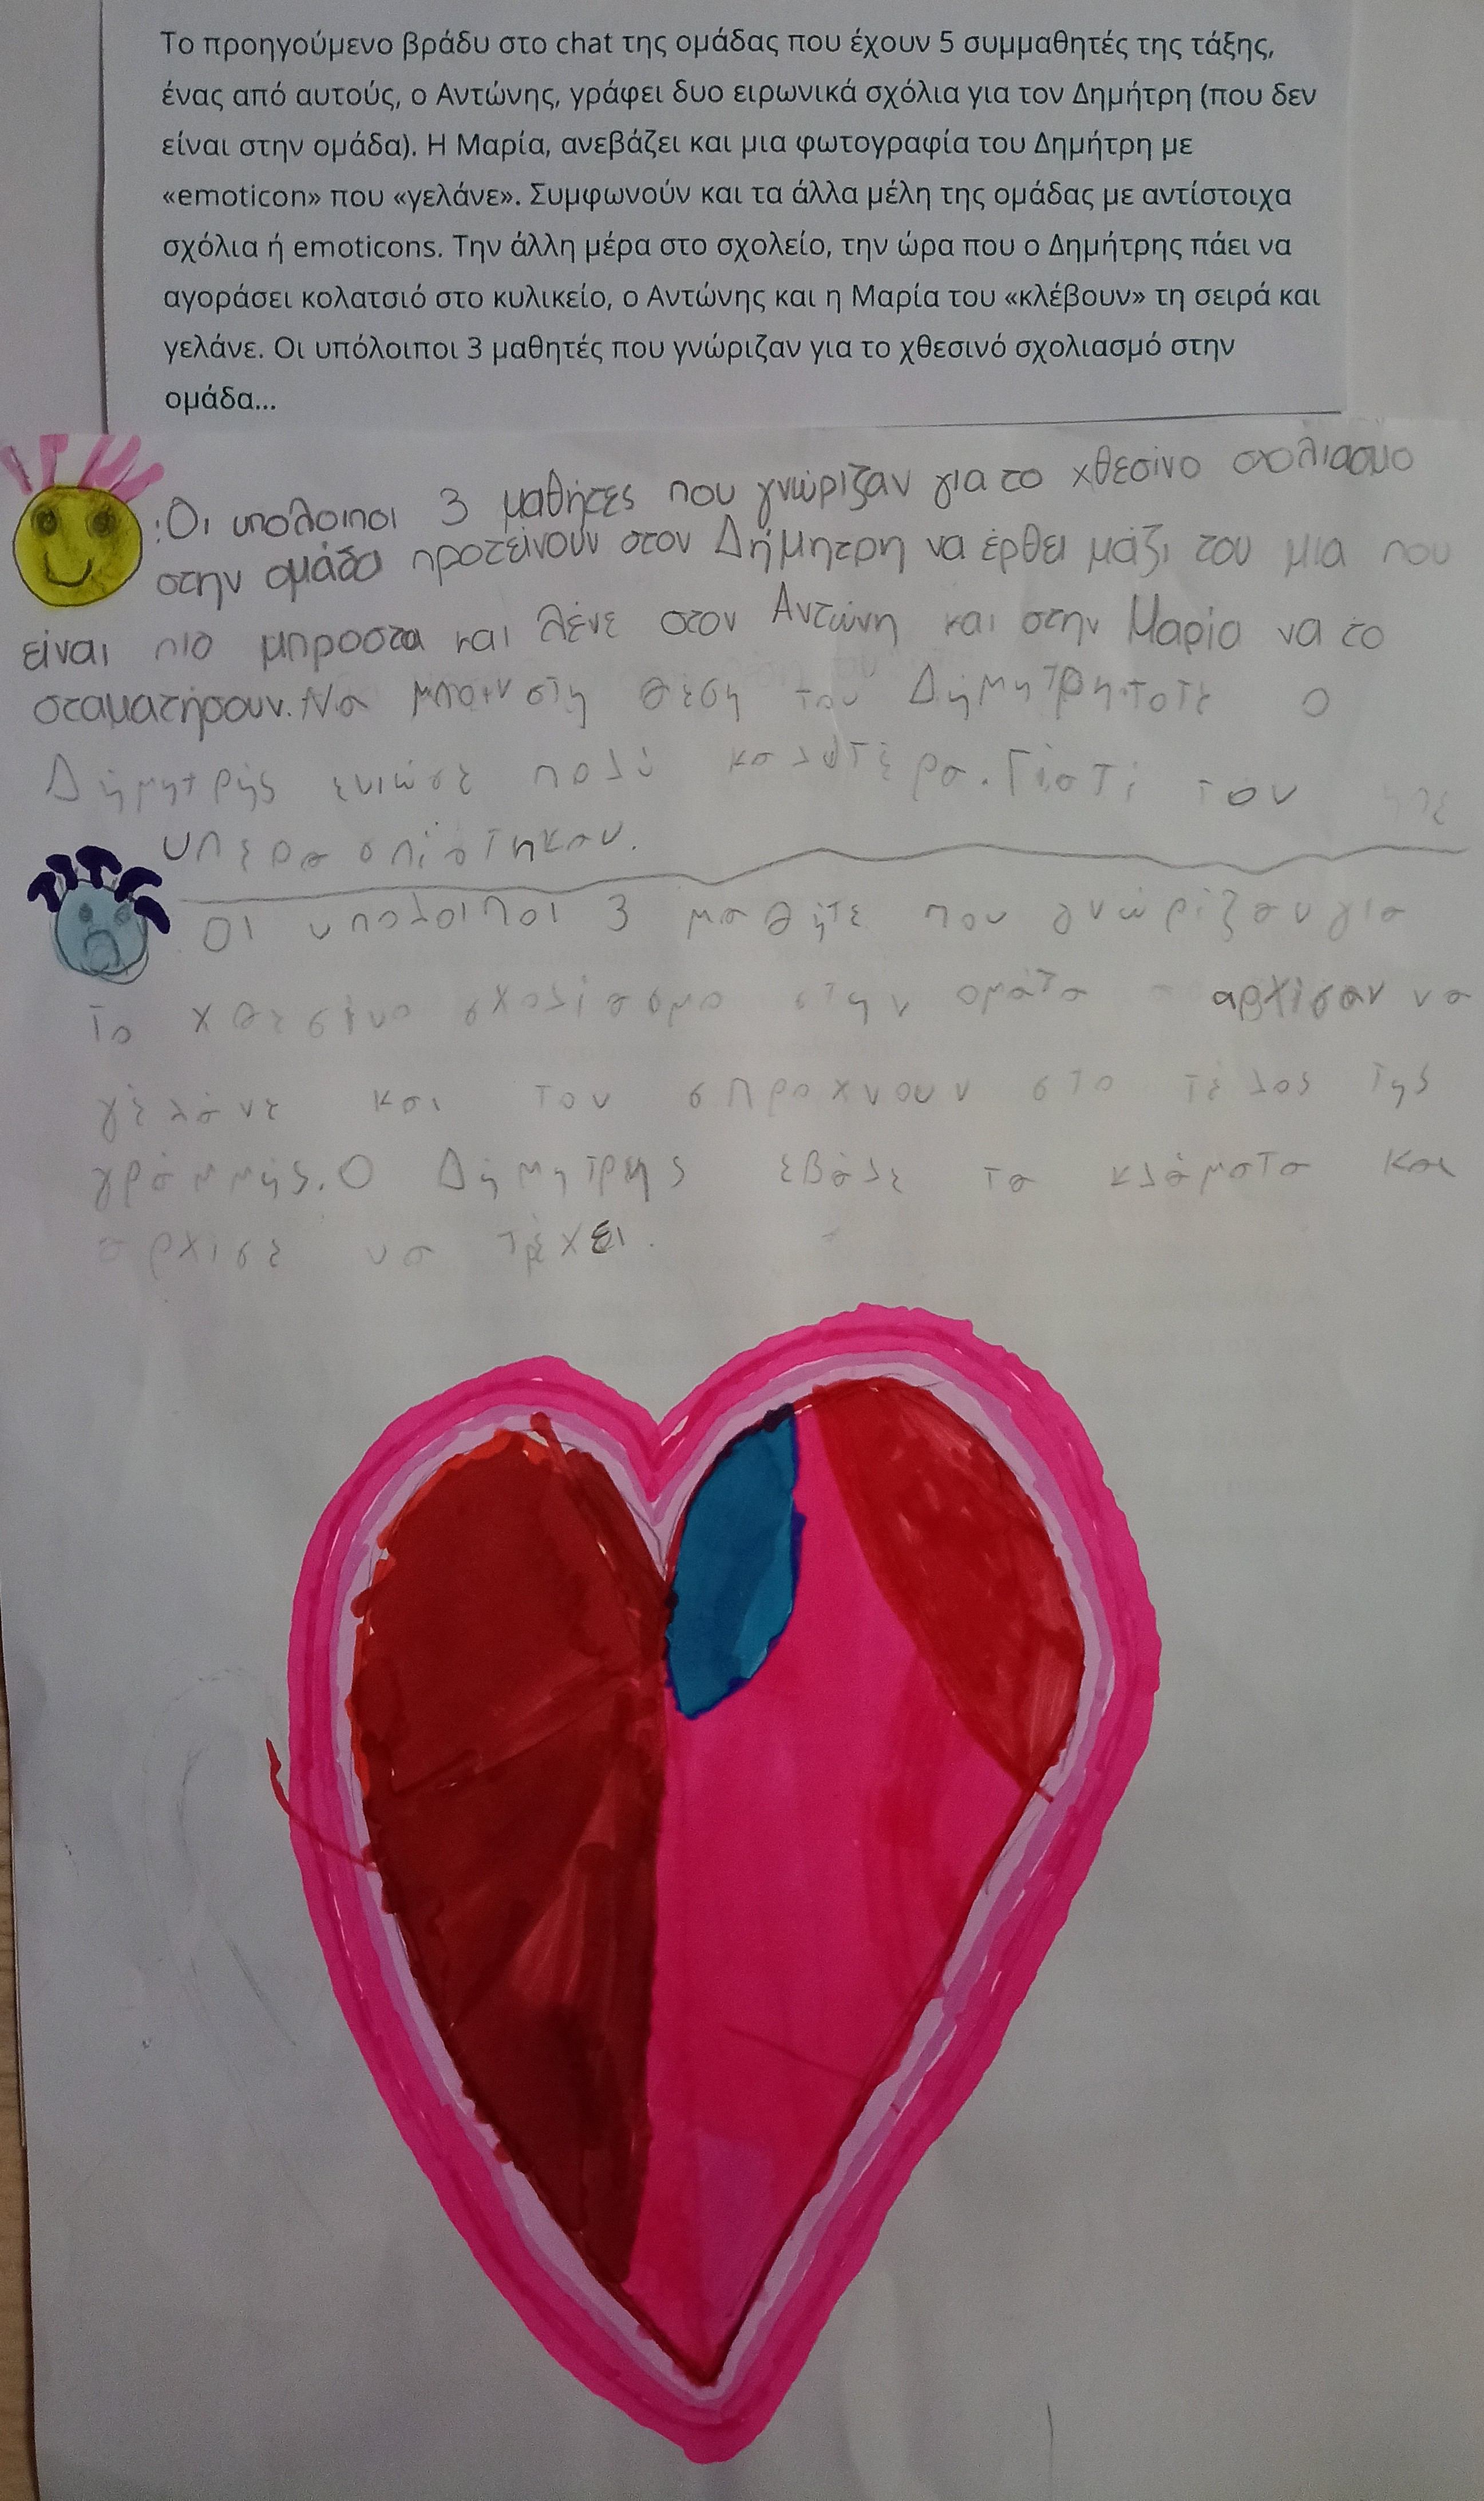 Το προηγούμενο βράδυ στο chat της ομάδας που έχουν 5 συμμαθητές της τάξης,
ένας από αυτούς, ο Αντώνης, γράφει δυο ειρωνικά σχόλια για τον Δημήτρη (που δεν
είναι στην ομάδα). Η Μαρία, ανεβάζει και μια φωτογραφία του Δημήτρη με
«emoticon» που «γελάνε». Συμφωνούν και τα άλλα μέλη της ομάδας με αντίστοιχα
σχόλια ή emoticons. Την άλλη μέρα στο σχολείο, την ώρα που ο Δημήτρης πάει να
αγοράσει κολατσιό στο κυλικείο, ο Αντώνης και η Μαρία του «κλέβουν» τη σειρά και
γελάνε. Οι υπόλοιποι 3 μαθητές που γνώριζαν για το χθεσινό σχολιασμό στην
ομάδα...
:Οι υπολοιποι 3 μαθήτες που γνώριζαν για το χθεσίνο σχολιασμο
στην ομάδα προτείνουν στον Δήμητρη να έρθει μάζι του μια που
είναι πιο μπροστα και λένε στον Αντώνη και στην Μαρία να το
σταματήσουν. Να μπουν στη θέση του Δήμητρη. τοτε ο
Δήμητρής ενιώσε πολύ καλύτέρα. Γίατί τον
υπερασπίστηκαν.
Οι υπολοιποι 3 μαθήτε που γνώρίζαν για
το χθεσίνο σχολίασμο στην ομάτα αρχίσαν να
γελάνε και τον σπροχνουν στο τέλος της
γράμμής. Ο Δήμητρης εβάλε τα κλάματα και
αρχισε να τρέχει.